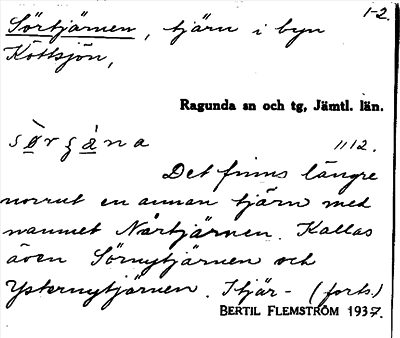 1-2.
Sörtjärnen, tjärn i byn
Kottsjön,
Ragunda sn och tg, Jämtl. län.
1112.
Det finns längre
norrut en annan tjärn med
namnet Nårtjärnen. Kallas
även Sörnytjärnen och
Ysternytjärnen. Itjär- (forts.)
BERTIL FLEMSTRÖM 1937.